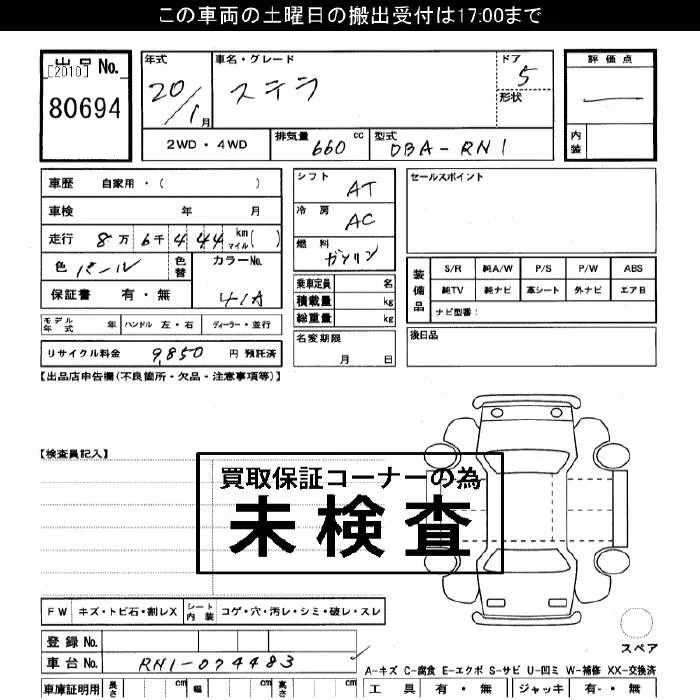 この車両の土曜日の搬出受付は17:00まで
出品 No.
[2010]
80694
年式
20/1月
車名・グレード
ステラ
ドア
5
形状
評価点
内装
2WD・4WD
排気量
660 cc
型式
DBA-RN1
車歴 自家用・( )
車検 年 月
走行 8万 6千 4 44 km マイル ( )
色 パール
色替
カラーNo.
41A
保証書 有・無
モデル年式 年 ハンドル 左・右 ディーラー・並行
リサイクル料金 9,850 円 預託済
シフト AT
冷房 AC
燃料 ガソリン
乗車定員 名
積載量 kg
総重量 kg
名変期限
月 日
セールスポイント
装備品
S/R 純A/W P/S P/W ABS
純TV 純ナビ 革シート 外ナビ エアB
ナビ型番:
後日品
【出品店申告欄(不良箇所・欠品・注意事項等)】
【検査員記入】
買取保証コーナーの為
未検査
FW キズ・トビ石・割レX シート内装 コゲ・穴・汚レ・シミ・破レ・スレ
登録No.
車台No. RN1-074483
スペア
A-キズ C-腐食 E-エクボ S-サビ U-凹ミ W-補修 XX-交換済
車庫証明用 長さ cm 幅 cm 高さ cm
工具 有・無 ジャッキ 有・無